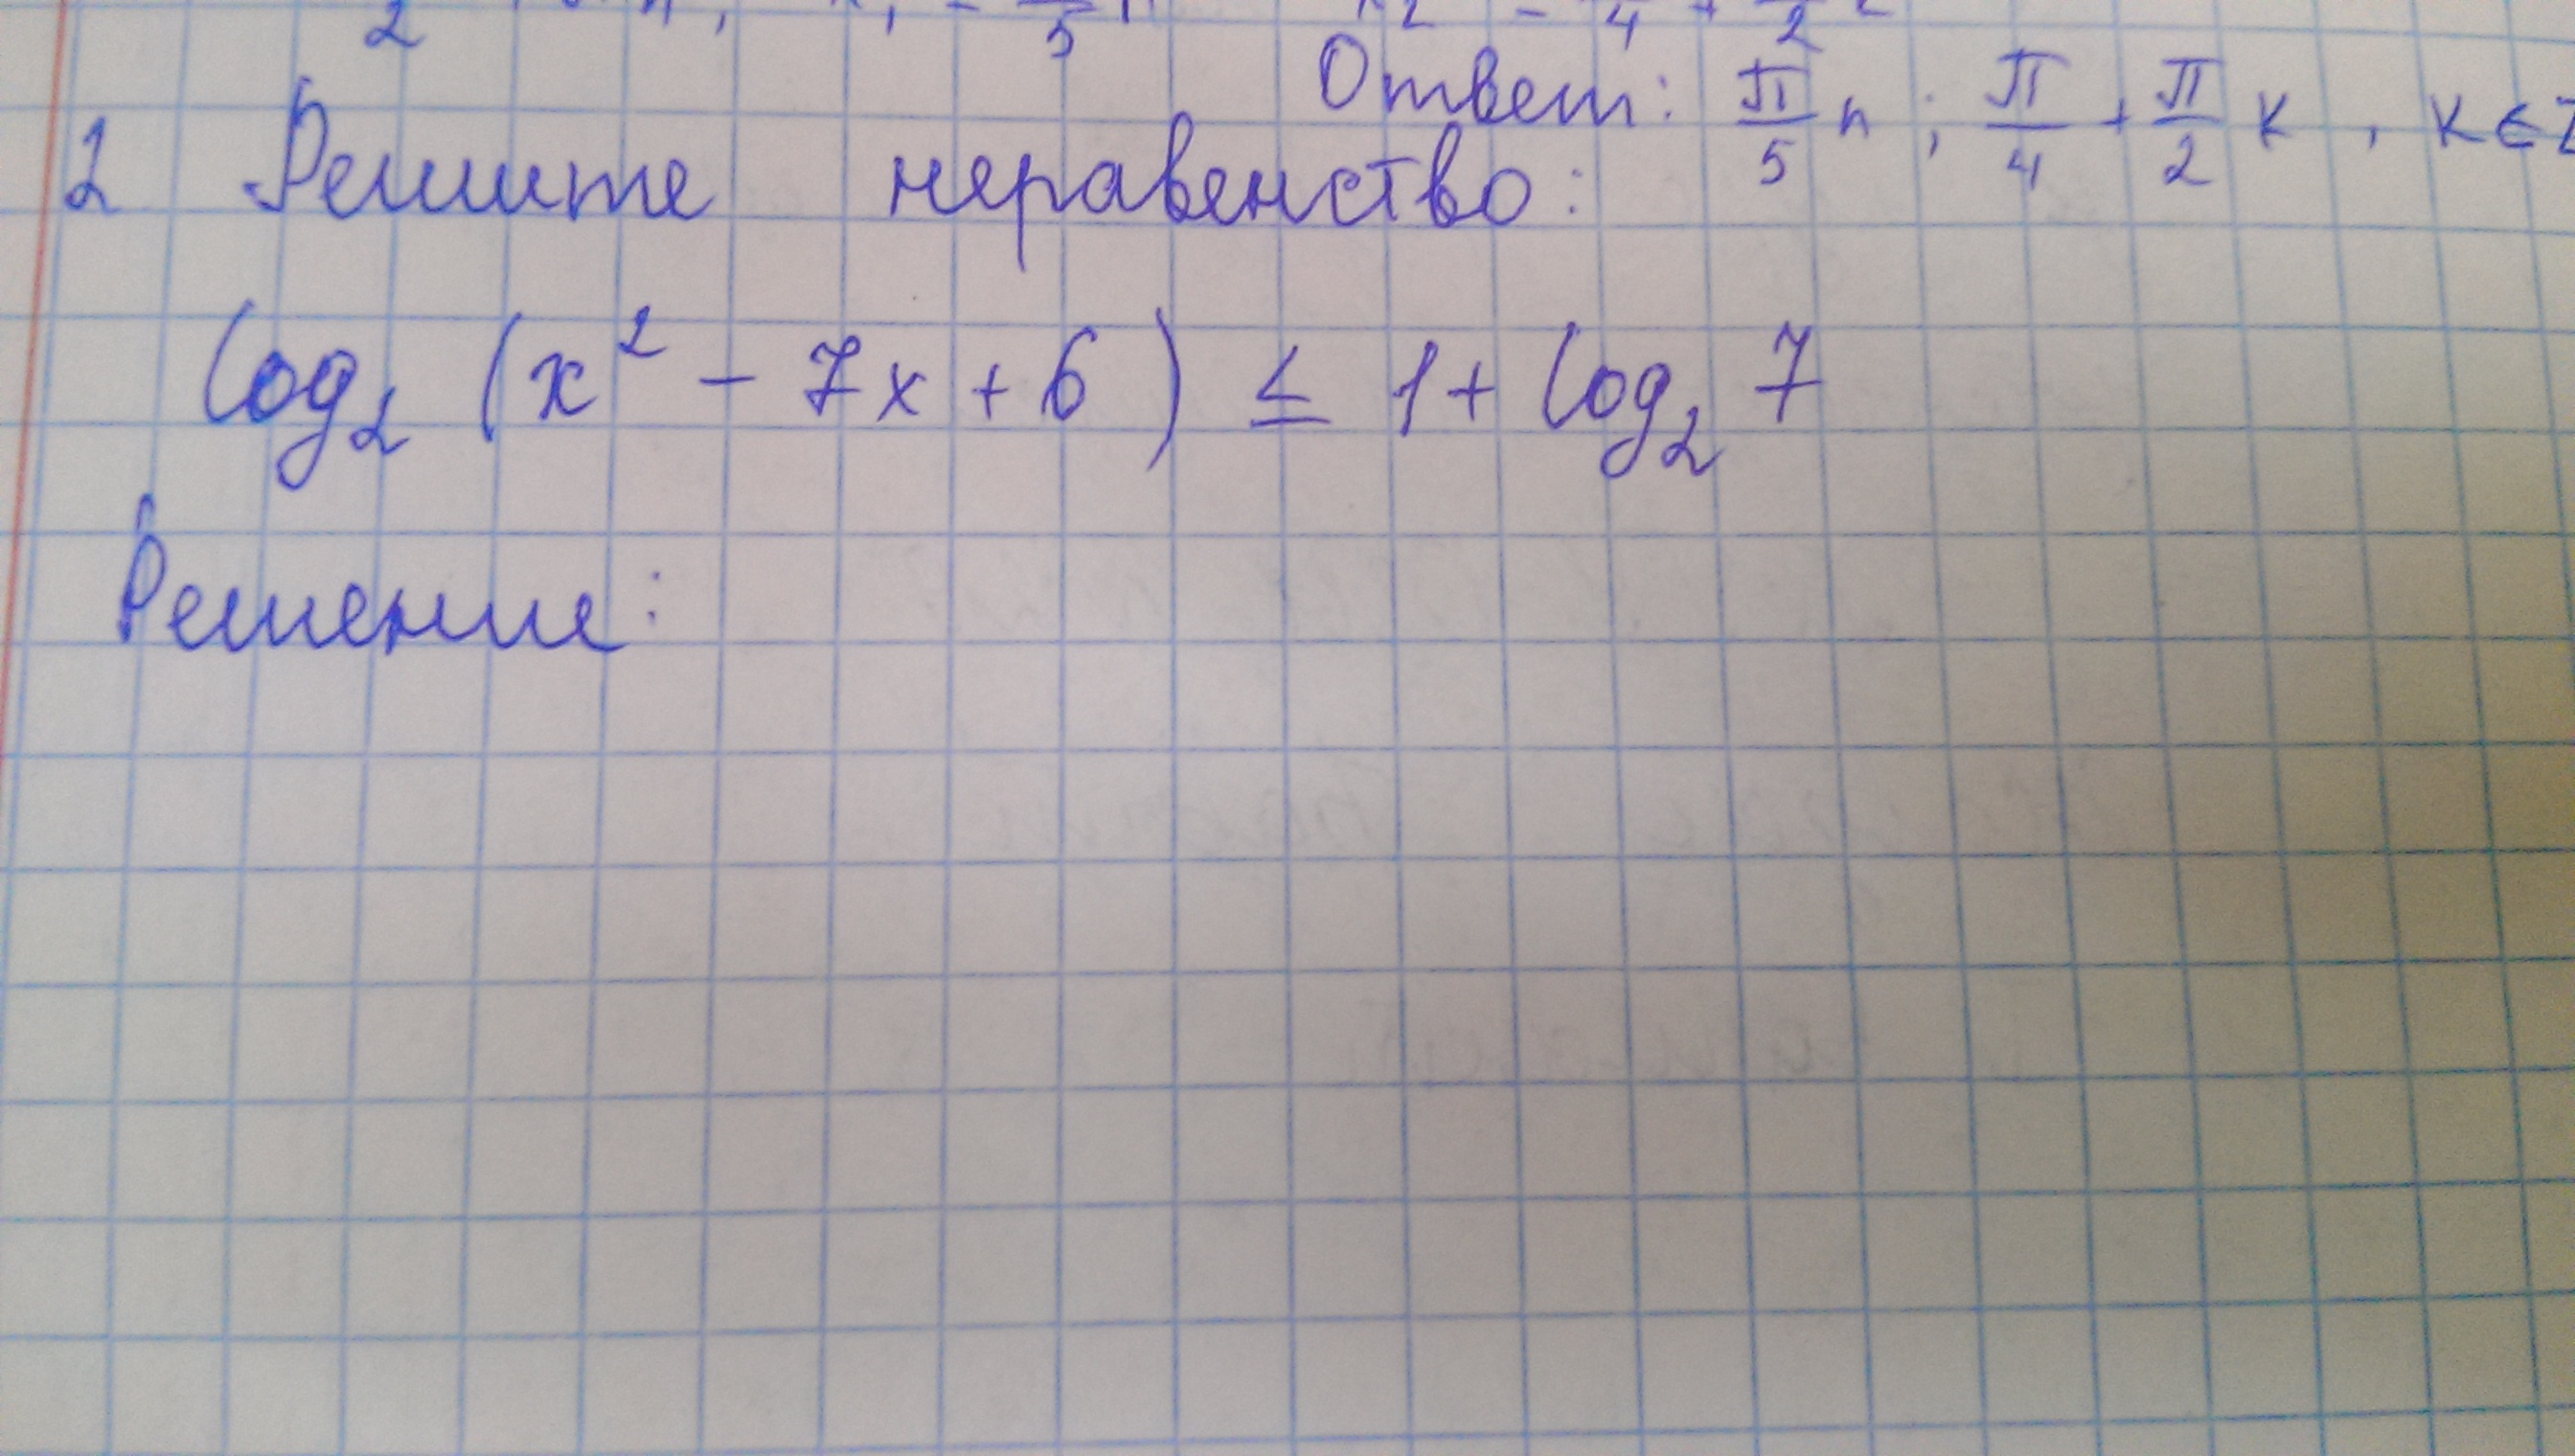 Ответ: π/5 n ; π/4 + π/2 k , k ∈ Z
2 Решите неравенство:
log₂ (x² - 7x + 6) ≤ 1 + log₂ 7
Решение: